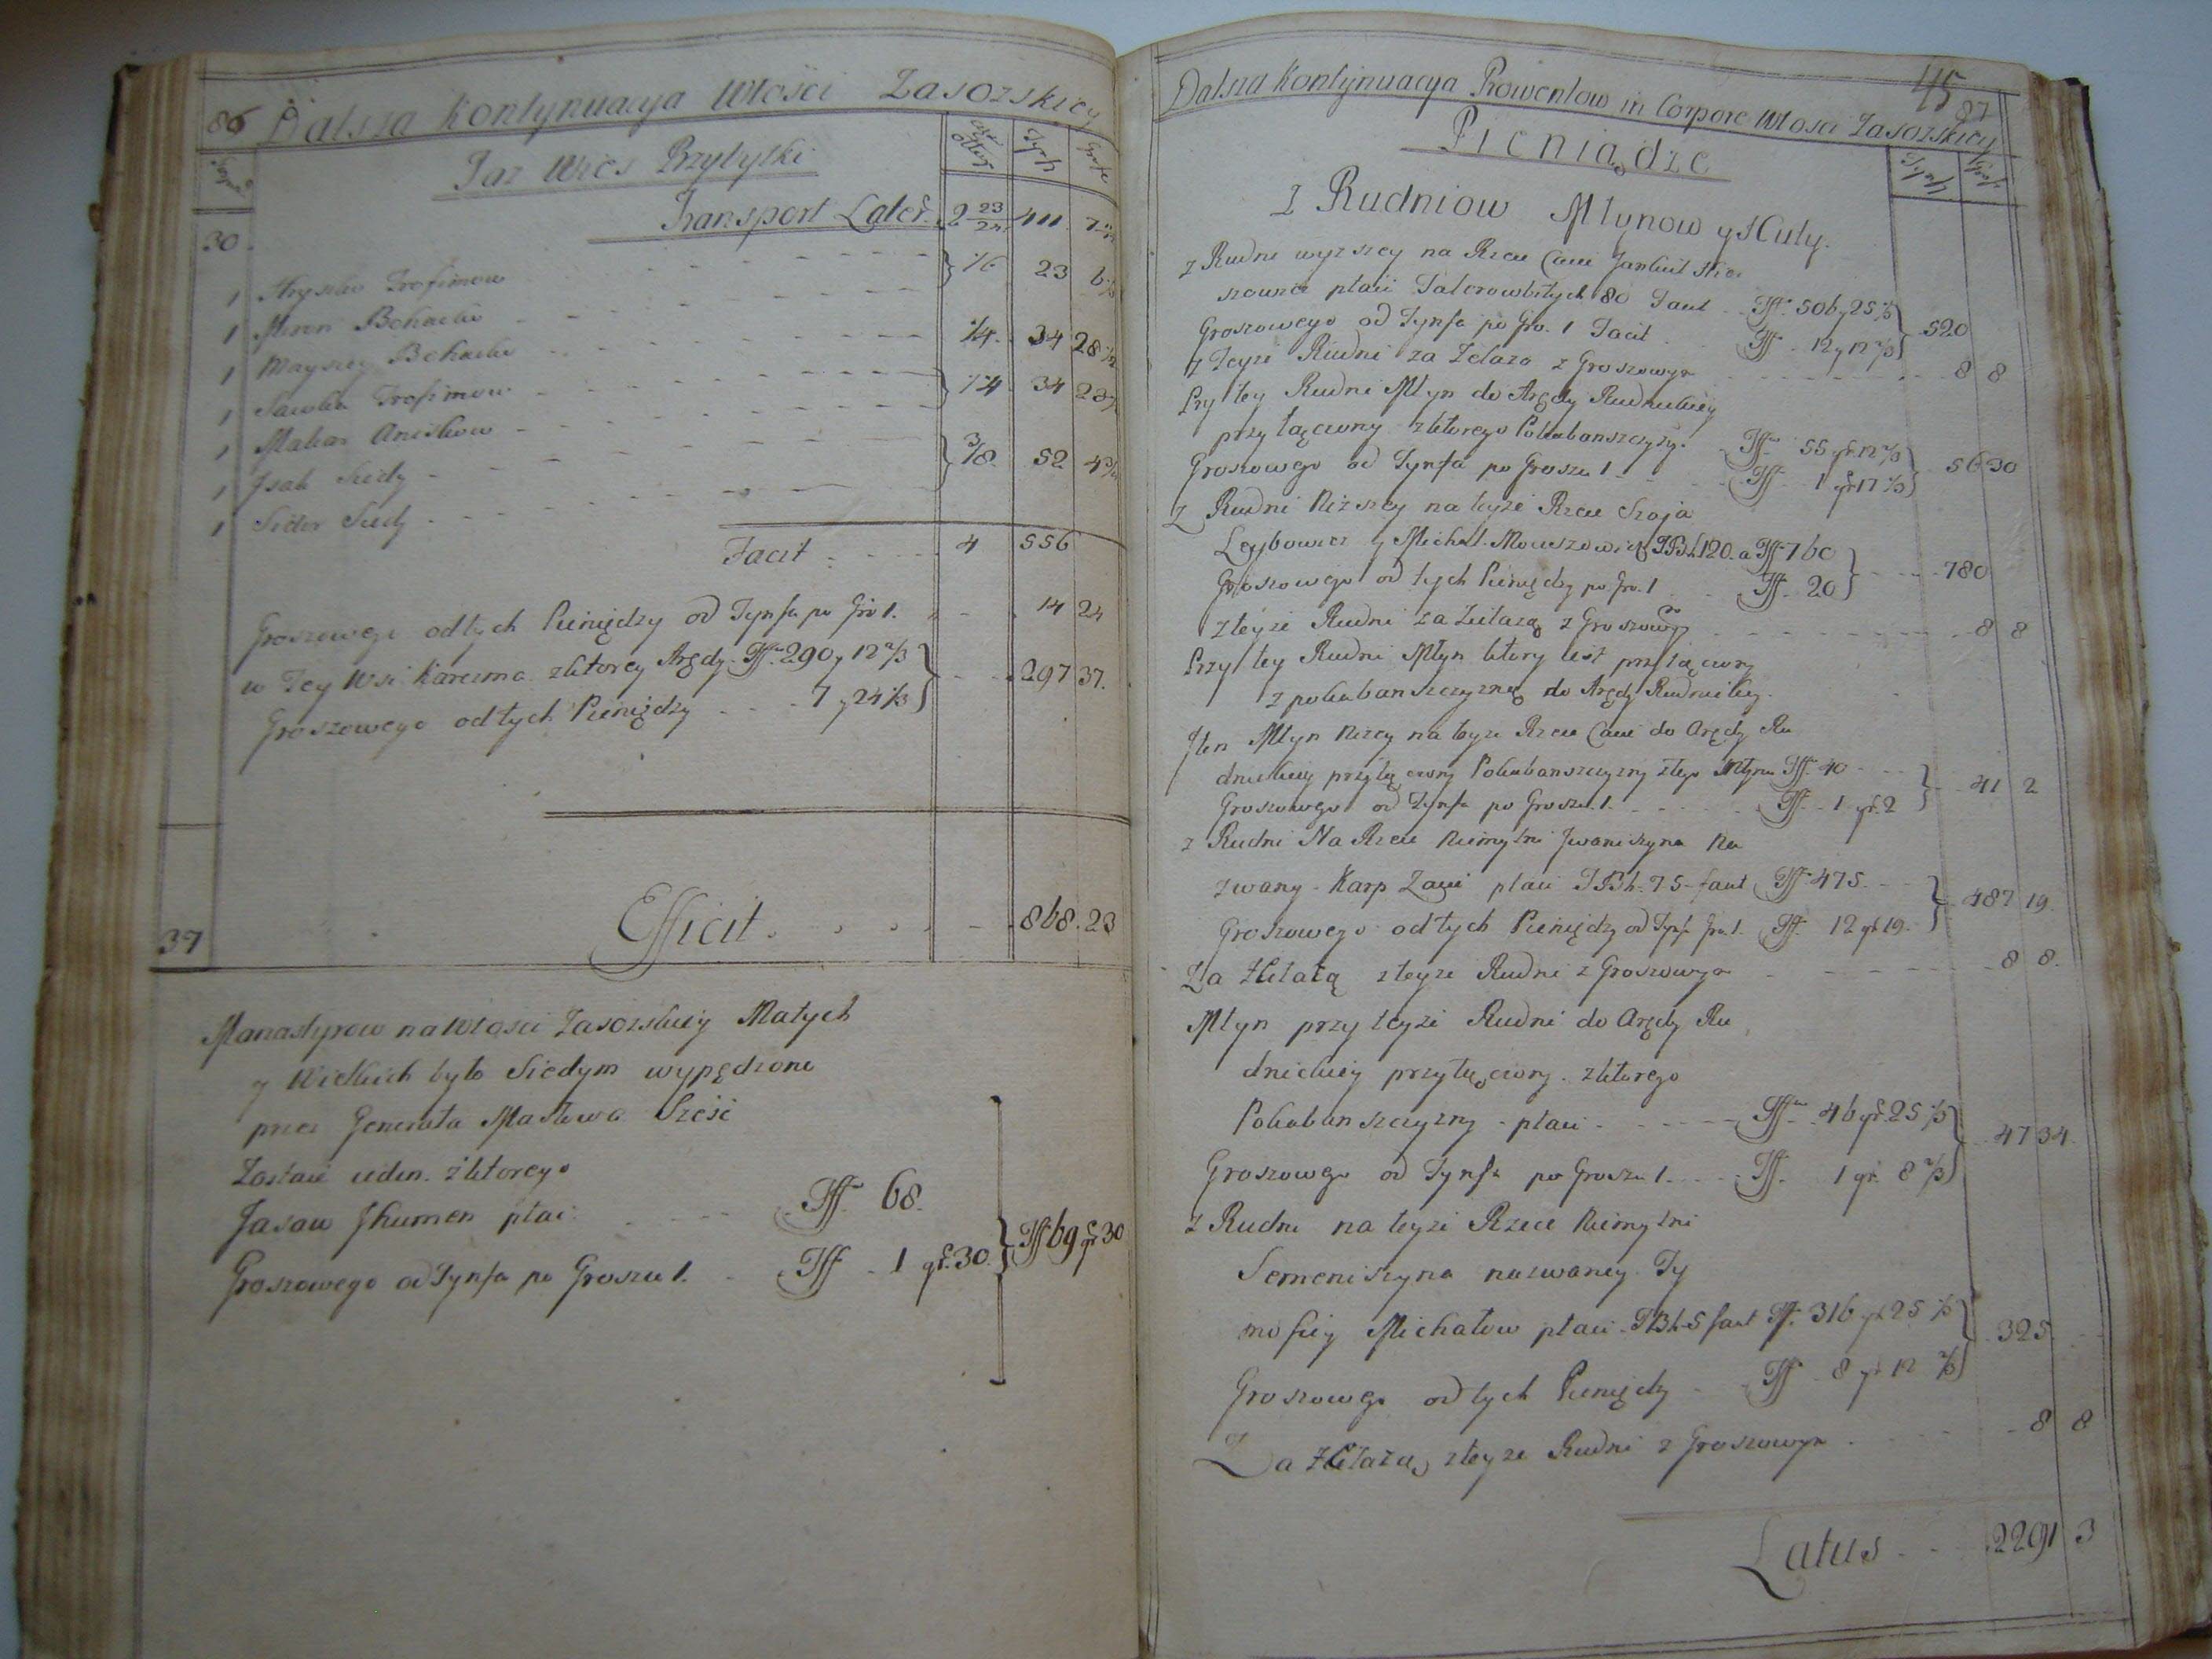 86 Dalsza Kontynuacya Włości Zasozskiey
Taz Wies Przybytki
Tynf Grosze
Transport Later. 2 23/24 411
30.
1 Hryszko Trofimow 1/6 23
1 Miron Bohacko
1 Mayszey Bohacko 1/4 34 28
1 Sawka Trofimow 1/4 34 28
1 Makar Aniskow
1 Jsak Siedy 3/8 52
1 Sidor Siedy
Facit 4 556
Groszowego od tych Pieniędzy od Tynfa po Gro 1. 14 24
w Tey Wsi Karczma z ktorey Arędy Tff 290 y 12 2/3 297 37.
Groszowego od tych Pieniędzy 7 y 24 1/3
37 Efficit 868 23
Manastyrow na Włości Zasozskiey Małych
y Wielkich było Siedym wypędzone
przez Generała Masłowa Sześć
Zostaie ieden z ktorego
Jasaw Jhumen płaci Tff 68.
Groszowego od Tynfa po Groszu 1. Tff 1 gr. 30. Tff 69 gr 30
Dalsza Kontynuacya Prowentow in Corpore Włości Zasozskiey
45 87
Pieniądze
Tynf Grosz
Z Rudniow Młynow y Huty.
z Rudni wyzszey na Rzece
płaci Talerowbitych 80 Tff 506 y 25 1/3 520
Groszowego od Tynfa po Gro. 1 Facit Tff 12 y 12 2/3
z Teyze Rudni za Zelazo z Groszowym 8 8
Przy tey Rudni Młyn do Arędy Rudnickiey
przyłączony z ktorego Pokabanszczyzny Tff 55 gr 12 2/3 56 30
Groszowego od Tynfa po Groszu 1 Tff 1 gr 17 1/3
Z Rudni Nizszey na teyze Rzece Szoja
Leybowicz y Michel Mowszowicz TBh 120 a Tff 760 780
Groszowego od tych Pieniędzy po Gro. 1 Tff 20
z teyze Rudni za Zelazo z Groszowym 8 8
Przy tey Rudni Młyn ktory iest przyłączony
z pokabanszczyzną do Arędy Rudnickiey.
Jten Młyn Nizey na teyze Rzece do Arędy Ru
dnickiey przyłączony Pokabanszczyzny z tego Młyna Tff 40 41 2
Groszowego od Tynfa po Groszu 1 Tff 1 gr. 2
z Rudni Na Rzece Niemylni Jwaniszyna Na
zwany Karp płaci TBh 75 Tff 475 487 19.
Groszowego od tych Pieniędzy od Tynf Gro. 1. Tff 12 gr 19.
Za z teyze Rudni z Groszowym 8 8.
Młyn przy teyze Rudni do Arędy Ru
dnickiey przyłączony z ktorego
Pokabanszczyzny płaci Tff 46 gr. 25 1/3 47 34.
Groszowego od Tynfa po Groszu 1. Tff 1 gr 8 2/3
z Rudni na teyze Rzece Niemylni
Semeniszyna nazwaney Ty
mofiey Michałow płaci Tff 316 gr 25 1/3 325
Groszowego od tych Pieniędzy Tff 8 gr 12 2/3
Za z teyze Rudni z Groszowym 8 8
Latus 2291 3